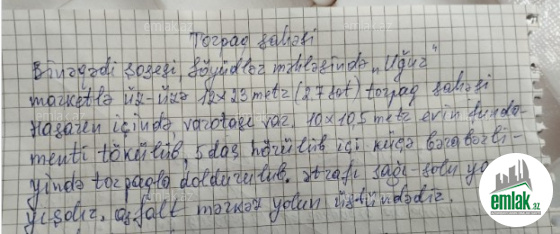 Torpaq sahəsi
Binəqədi şosesi, Söyüdlər məhləsində, "Uğur"
marketlə üz-üzə 12x23 metr (2,7 sot) torpaq sahəsi
Hasarın içində, varotası var, 10x10,5 metr evin funda-
menti tökülüb, 5 daş hörülüb içi küçə bərabərli-
yində torpaqla doldurulub. Ətrafı sağı-solu ya
yışdır. asfalt mərkəz yolun üstündədir.
emlak.az